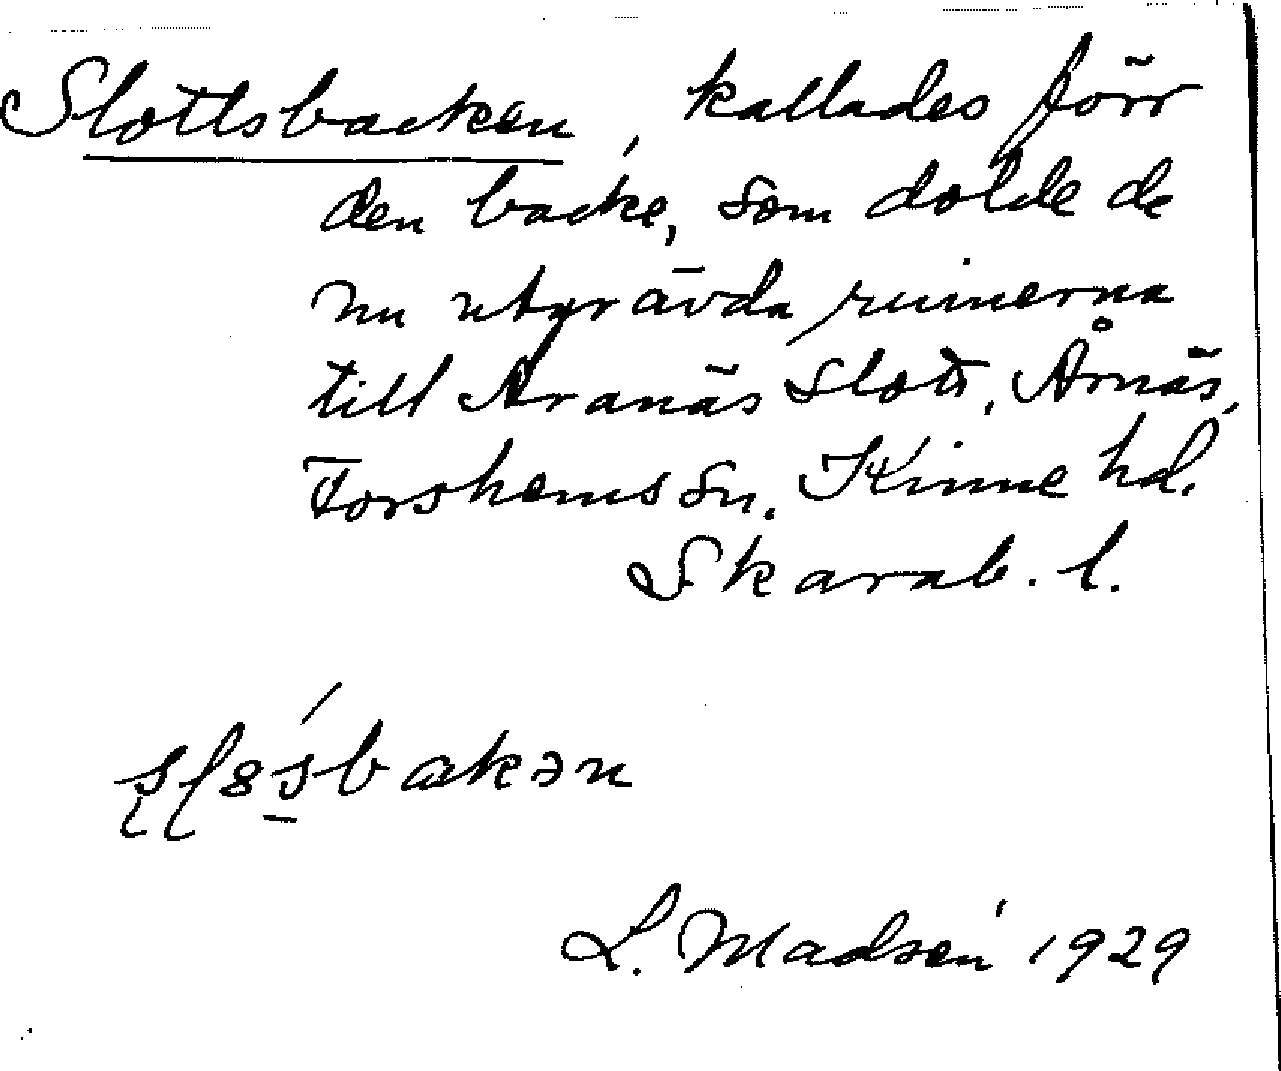 Slottsbacken, kallades förr
den backe, som dolde de
nu utgrävda ruinerna
till Aranäs slott, Årnäs,
Forshems sn. Kinne hd.
Skarab. l.
L. Madsén 1929